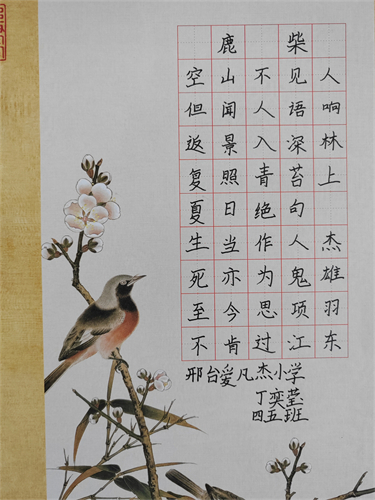 鹿柴
空山不见人
但闻人语响
返景入深林
复照青苔上
夏日绝句
生当作人杰
死亦为鬼雄
至今思项羽
不肯过江东
邢台爱凡杰小学
丁奕莹
四五班